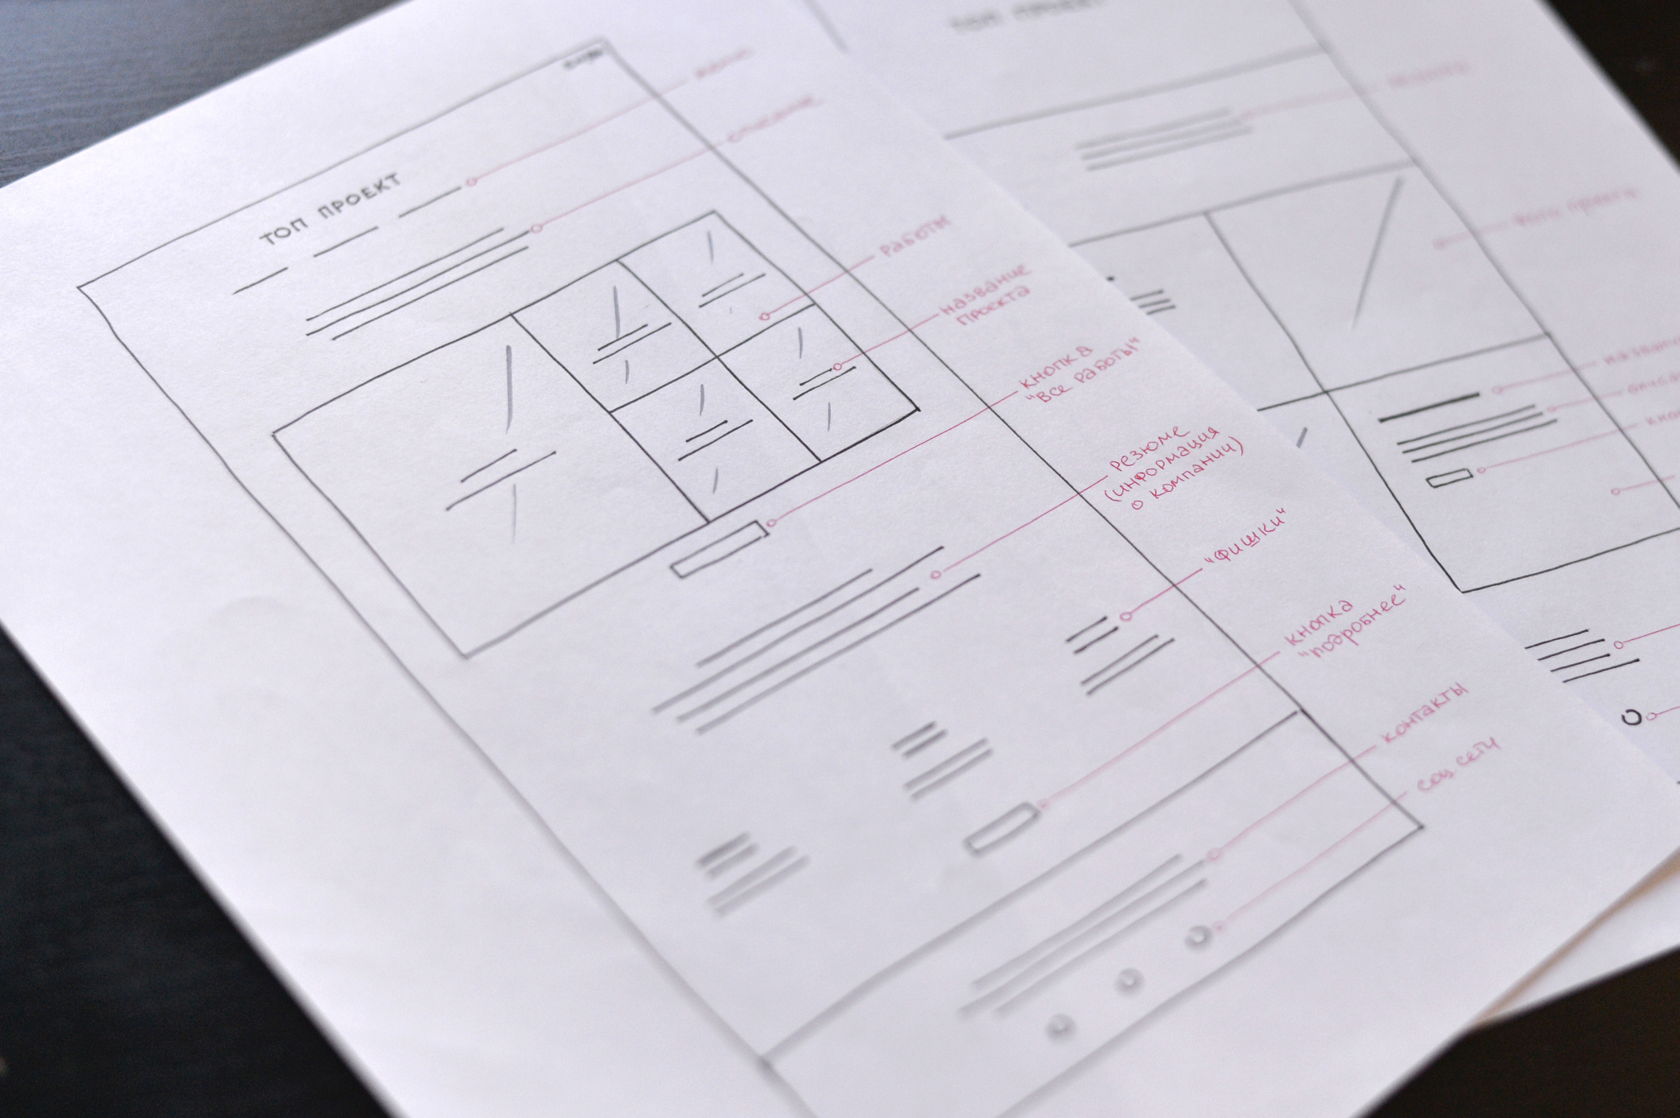 ТОП ПРОЕКТ
описание
работы
название
проекта
кнопка
"все работы"
резюме
(информация
о компании)
"фишки"
кнопка
"подробнее"
контакты
соц. сети
ТОП ПРОЕКТ
фото проекта